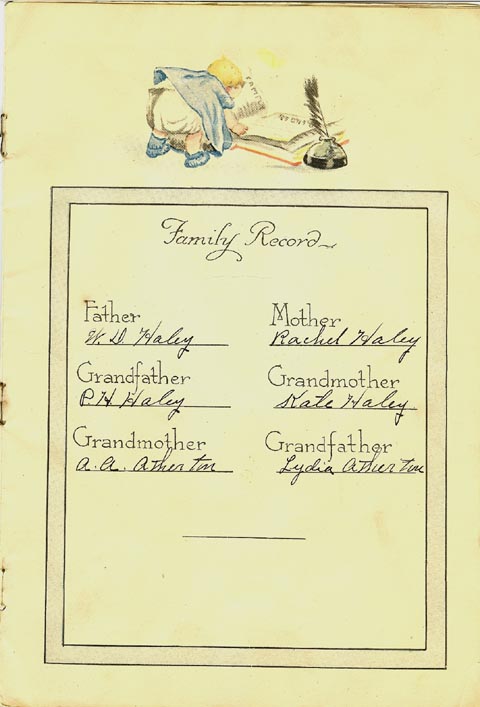 Family Record
Father Mother
W. D. Haley Rachel Haley
Grandfather Grandmother
P. H. Haley Kate Haley
Grandmother Grandfather
A. A. Atherton Lydia Atherton